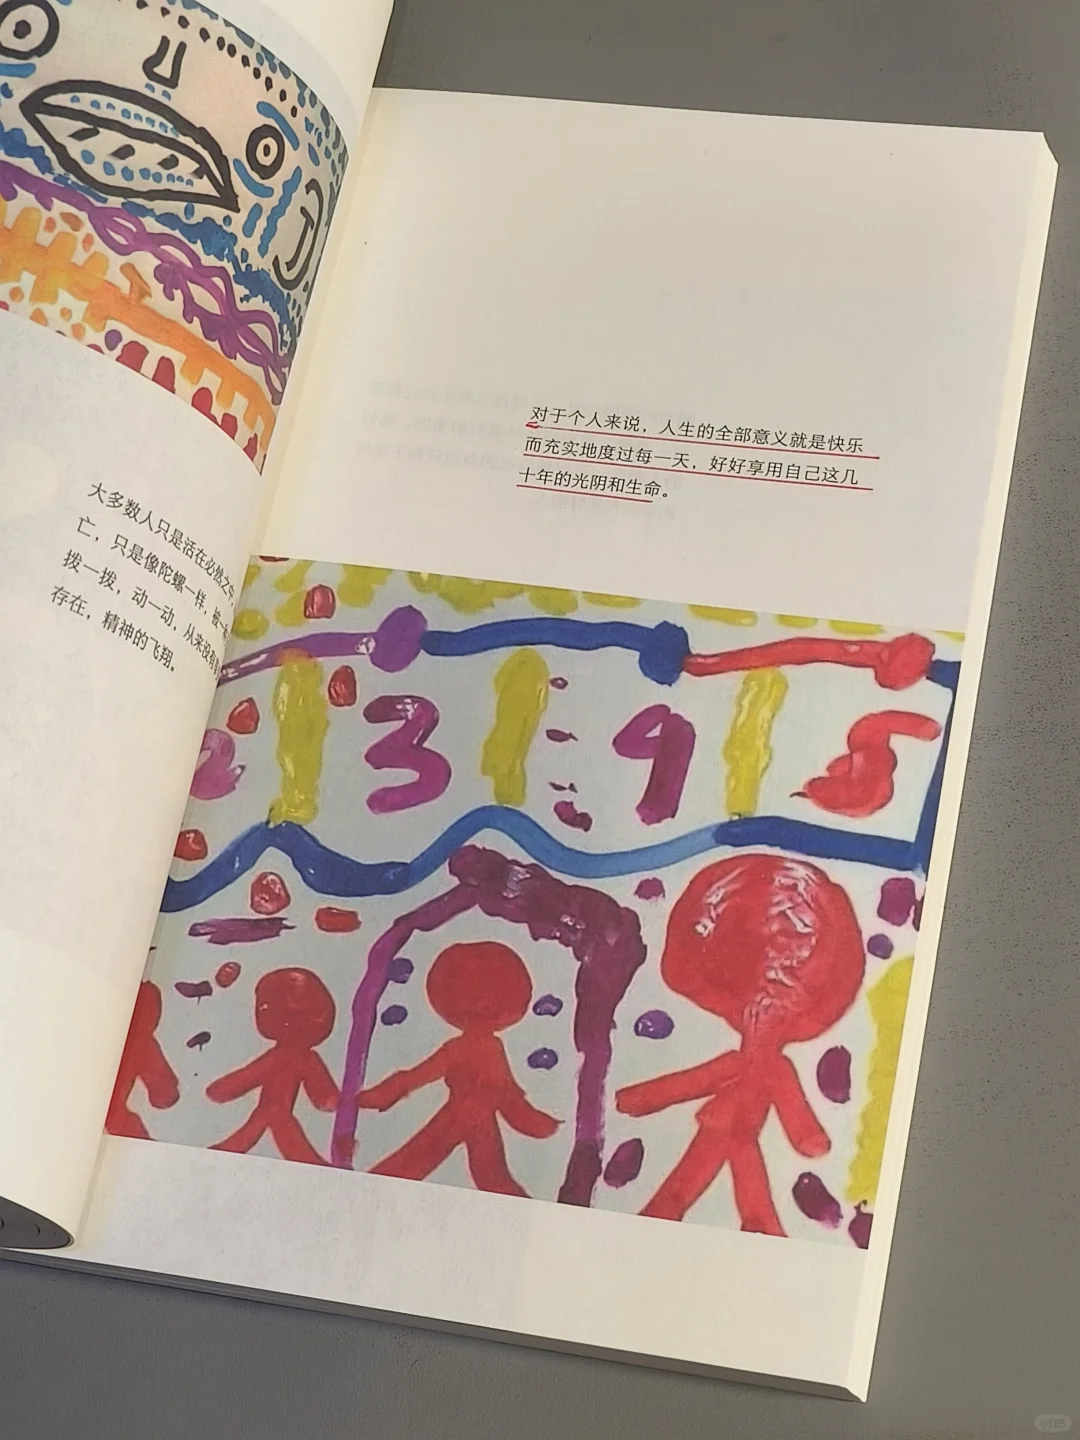 大多数人只是活在必然之中,
亡，只是像陀螺一样，被一
拨一拨，动一动，从来没有
存在，精神的飞翔。
对于个人来说，人生的全部意义就是快乐
而充实地度过每一天，好好享用自己这几
十年的光阴和生命。
3 9 5